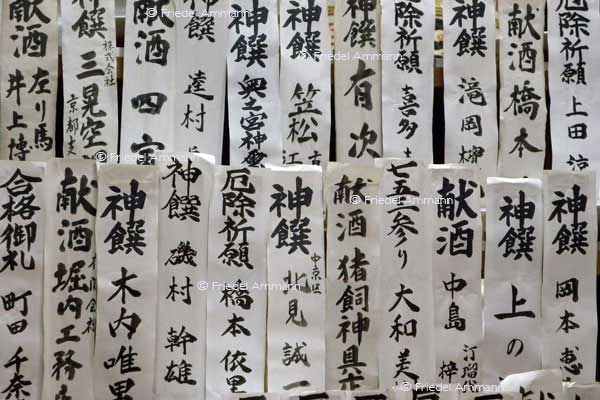 厄除祈願 上田
献酒 橋本
神饌 滝岡
厄除祈願 喜多
神饌 有次
神饌 笠松 江
神饌
饌 逵村
献酒 四
神饌 株式会社 三晃空 京都支
献酒 左り馬 井上博
神饌 岡本 恵
神饌 上の
献酒 中島 汀瑠 梓
七五三参り 大和 美
献酒 猪飼神具店
神饌 中京区 北見 誠一
厄除祈願 橋本 依里
神饌 磯村 幹雄
神饌 木内 唯里
献酒 堀内工務
合格御礼 町田 千奈
© Friedel Ammann
© Friedel Ammann
© Friedel Ammann
© Friedel Ammann
© Friedel Ammann
© Friedel Ammann